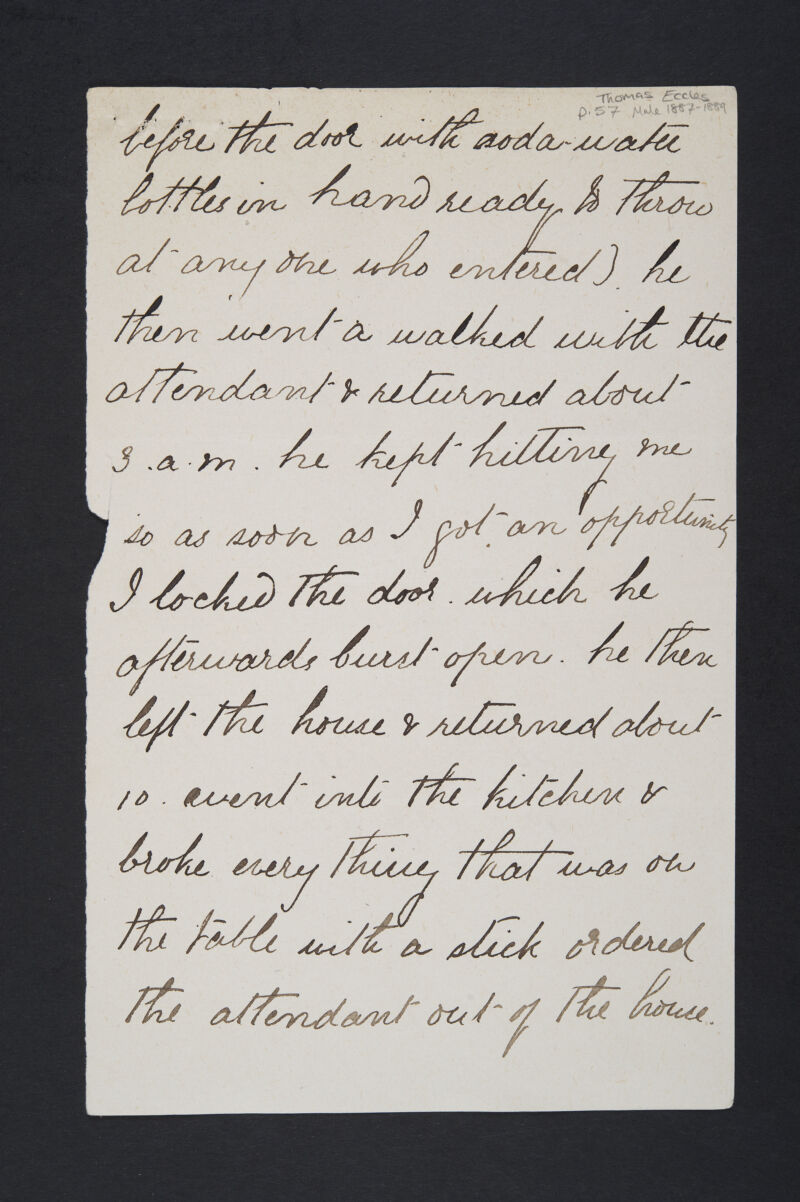 Thomas Eccles
p.57 Male 1887-1889
before the door with soda-water
bottles in hand ready to throw
at any one who entered) he
then went a walked with the
attendant & returned about
3 .a.m. he kept hitting me
so as soon as I got an opportunity
I locked the door. which he
afterwards burst open. he then
left the house & returned about
10. went into the kitchen &
broke every thing that was on
the table with a stick ordered
the attendant out of the house.